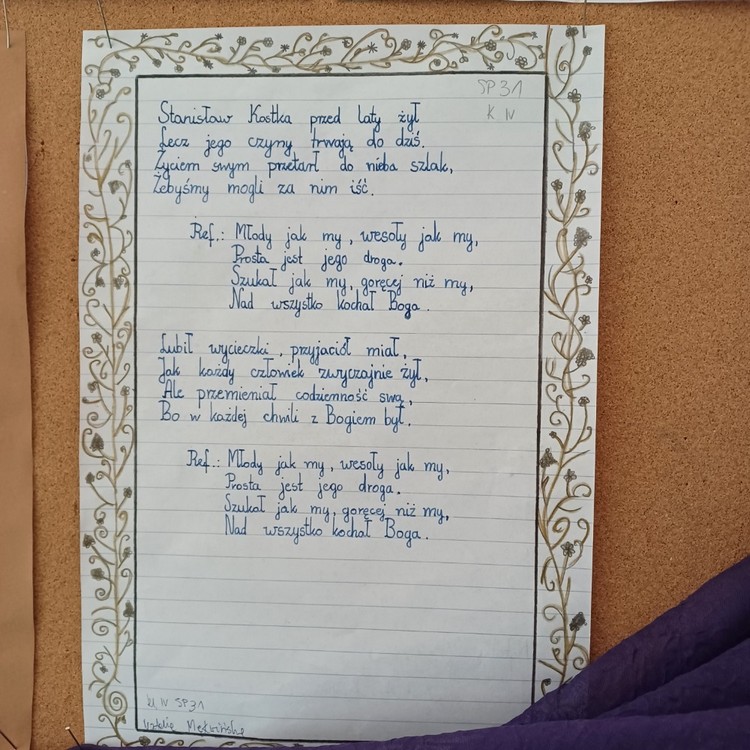 SP 31
K IV
Stanisław Kostka przed laty żył
Lecz jego czyny trwają do dziś.
Życiem swym przetarł do nieba szlak,
Żebyśmy mogli za nim iść.
Ref.: Młody jak my, wesoły jak my,
Prosta jest jego droga.
Szukał jak my, goręcej niż my,
Nad wszystko kochał Boga.
Lubił wycieczki, przyjaciół miał,
Jak każdy człowiek zwyczajnie żył,
Ale przemieniał codzienność swą,
Bo w każdej chwili z Bogiem był.
Ref.: Młody jak my, wesoły jak my,
Prosta jest jego droga.
Szukał jak my, goręcej niż my,
Nad wszystko kochał Boga.
kl IV SP31